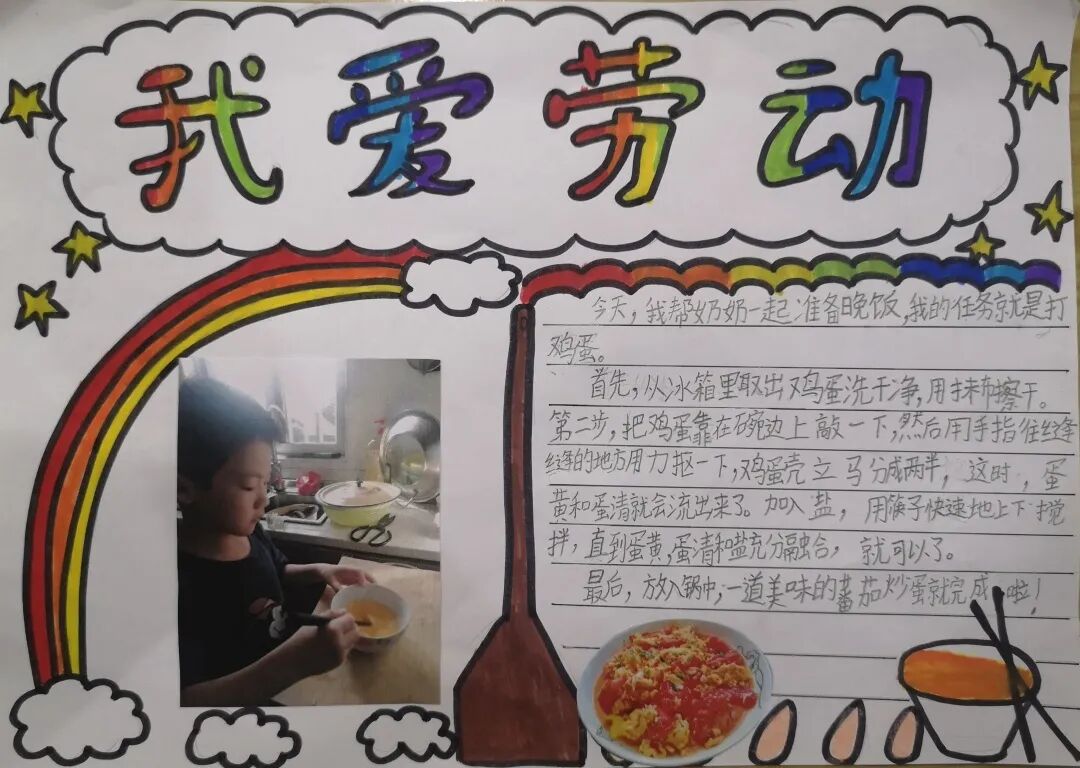 我爱劳动
今天,我帮奶奶一起准备晚饭,我的任务就是打
鸡蛋。
首先,从冰箱里取出鸡蛋洗干净,用抹布擦干。
第二步,把鸡蛋靠在碗边上敲一下,然后用手指在缝
缝的地方用力抠一下,鸡蛋壳立马分成两半,这时,蛋
黄和蛋清就会流出来了。加入盐,用筷子快速地上下搅
拌,直到蛋黄,蛋清和盐充分融合,就可以了。
最后,放入锅中,一道美味的蕃茄炒蛋就完成啦!